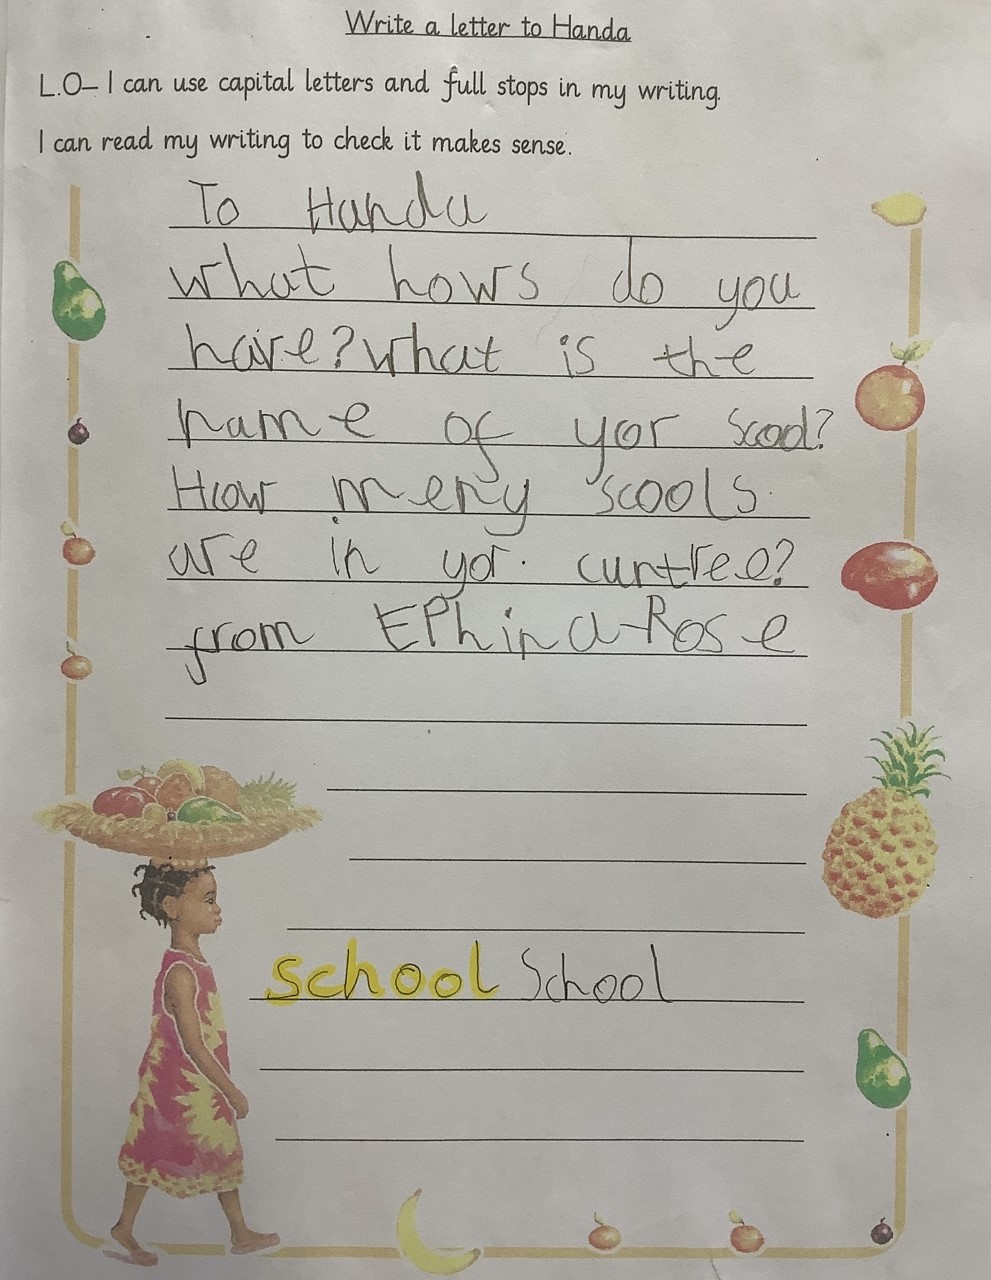 Write a letter to Handa
L.O– I can use capital letters and full stops in my writing.
I can read my writing to check it makes sense.
To Handa
what hows do you
have? what is the
name of yor scool?
How meny scools
are in yor. cuntree?
from EPhina-Rose
school School